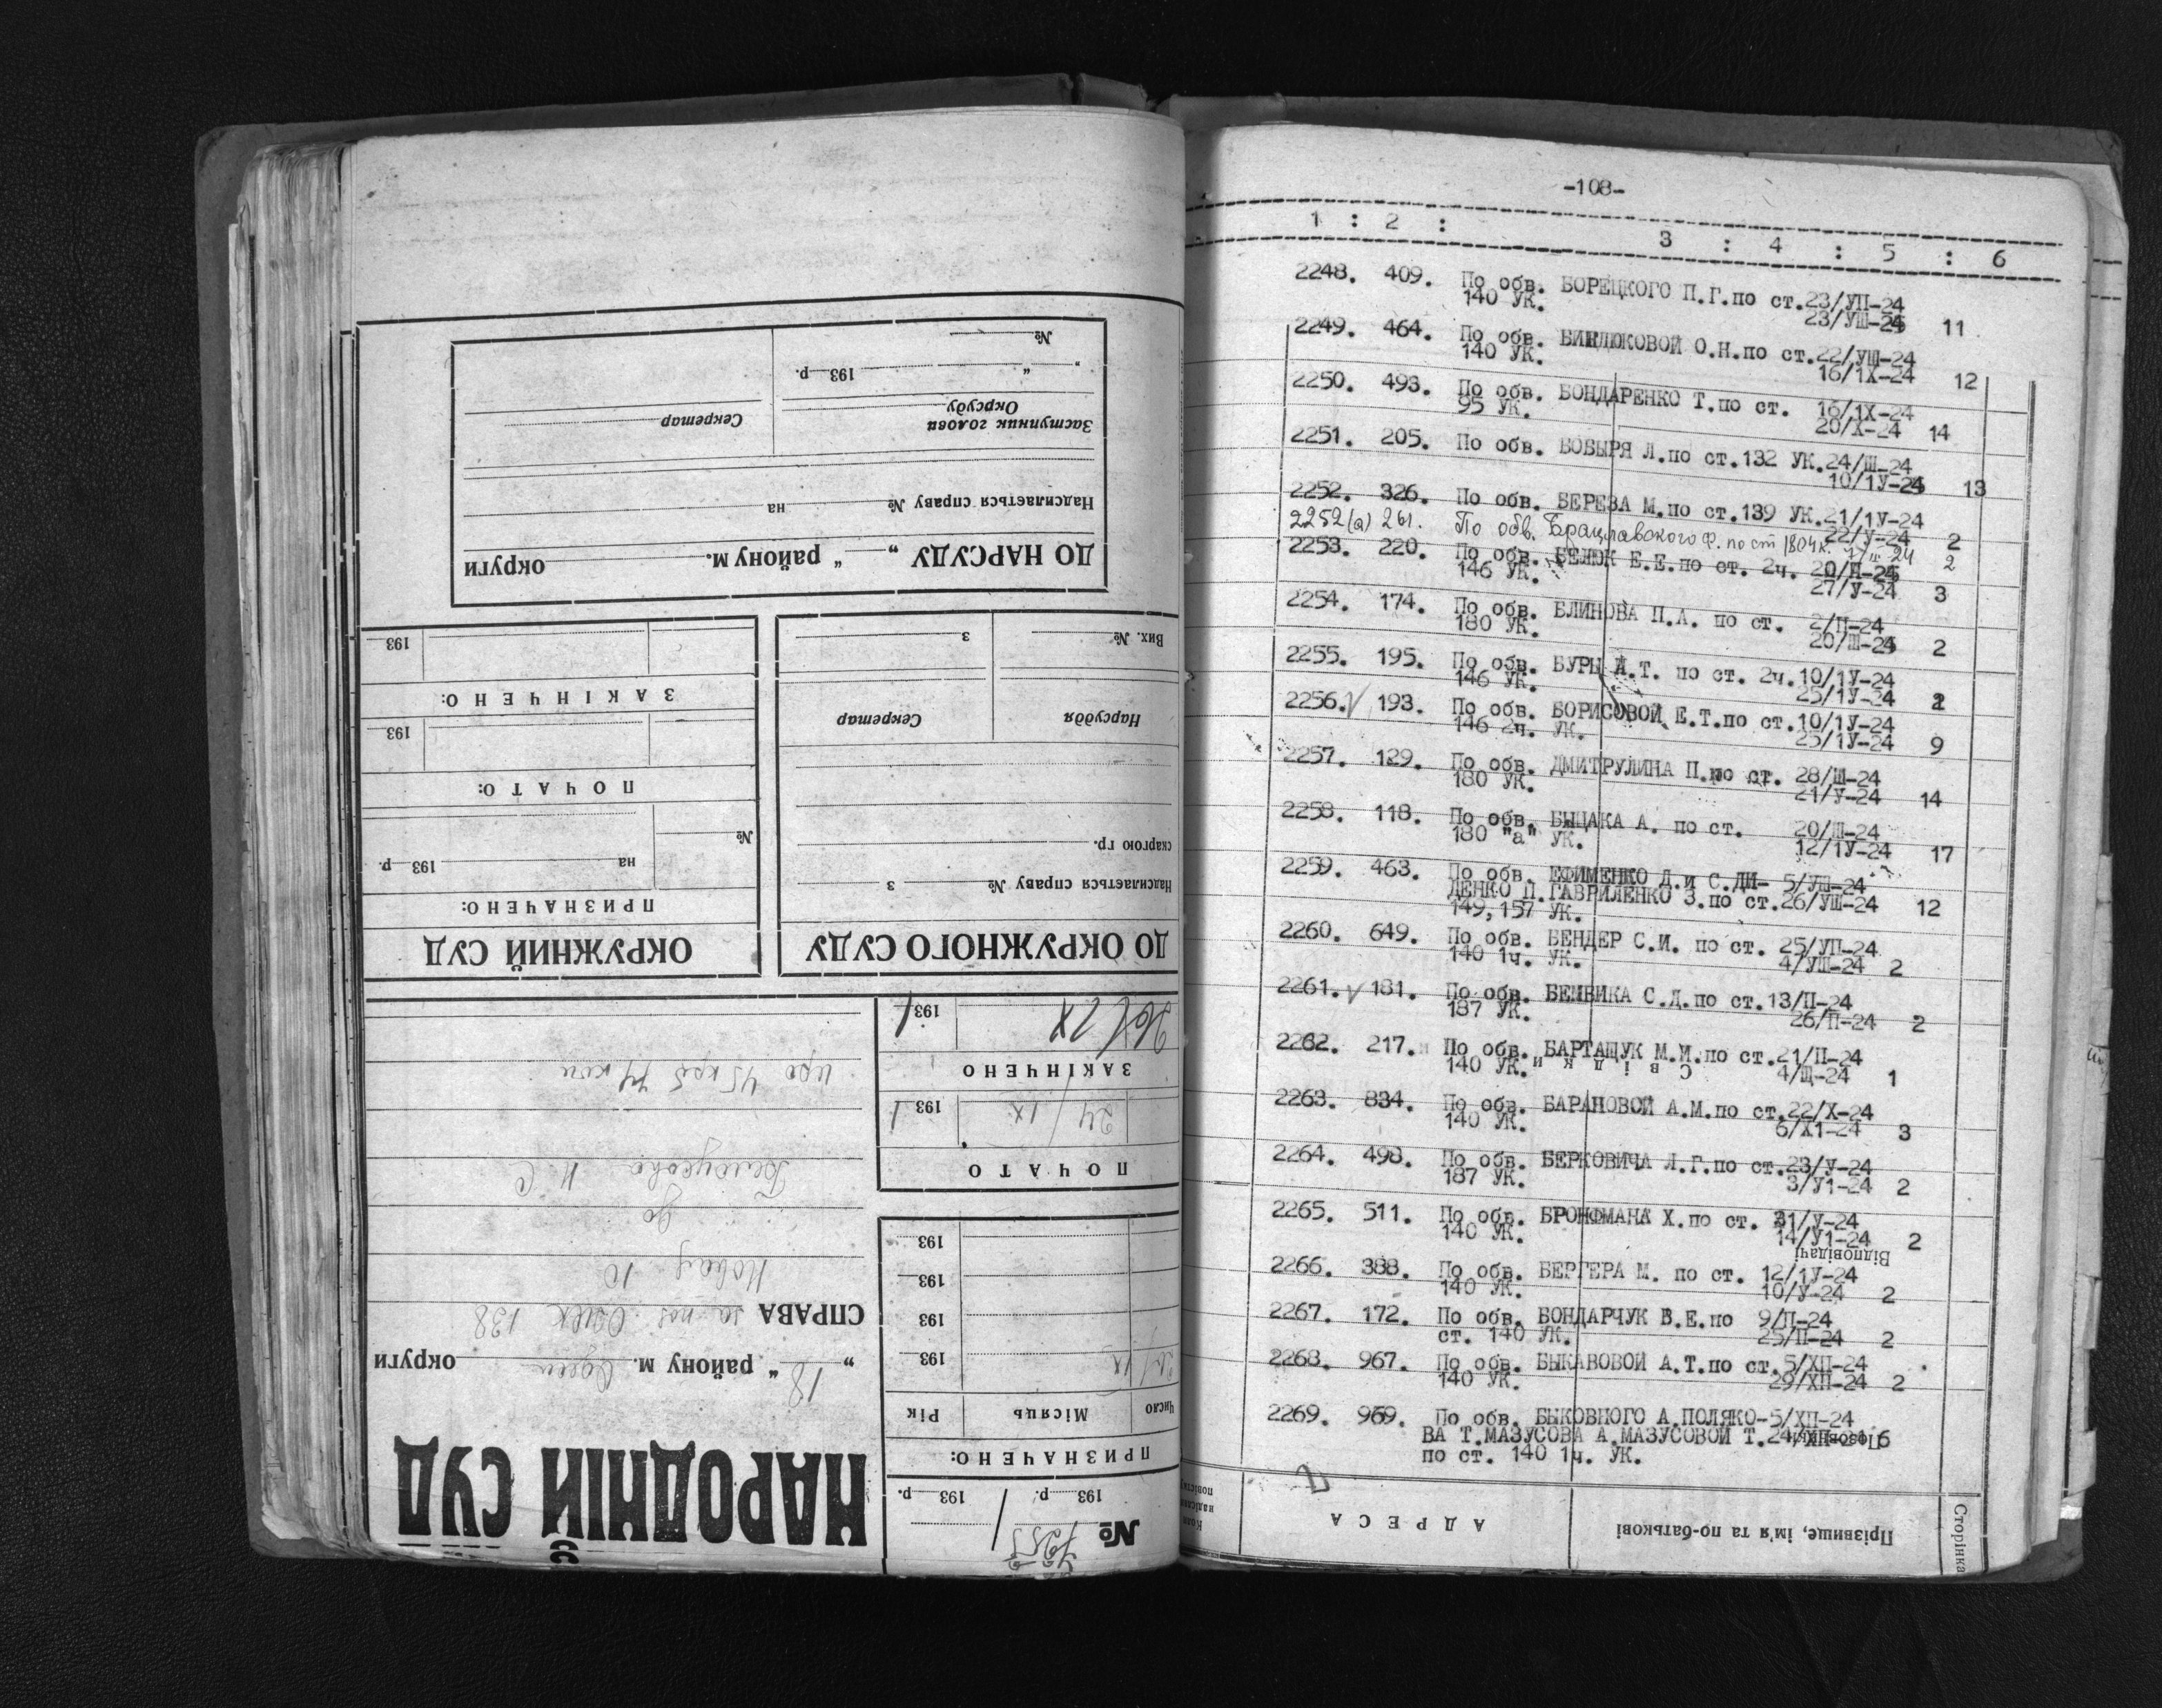 -108-
1 : 2 : 3 : 4 : 5 : 6
2248. 409. По обв. БОРЕЦКОГО П.Г.по ст.23/УП-24
140 УК. 23/УШ-24 11
2249. 464. По обв. БИНДЮКОВОЙ О.Н.по ст.22/УШ-24
140 УК. 16/1Х-24 12
2250. 493. По обв. БОНДАРЕНКО Т.по ст. 16/1Х-24
95 УК. 20/Х-24 14
2251. 205. По обв. БОБЫРЯ Л.по ст.132 УК.24/Ш-24
10/1У-24 13
2252. 326. По обв. БЕРЕЗА М.по ст.139 УК.21/1У-24
22/У-24 2
2252(а) 261. По обв. Брацлавского Ф. по ст 180 УК. 24 2
2253. 220. По обв. БЕЛЮК Е.Е.по ст. 2ч. 20/П-24
146 УК. 27/У-24 3
2254. 174. По обв. БЛИНОВА П.А. по ст. 2/П-24
180 УК. 20/Ш-24 2
2255. 195. По обв. БУРЫ А.Т. по ст. 2ч.10/1У-24
146 УК. 25/1У-24 2
2256. 193. По обв. БОРИСОВОЙ Е.Т.по ст.10/1У-24
146 2ч. УК. 25/1У-24 9
2257. 129. По обв. ДМИТРУЛИНА П.по ст. 28/Ш-24
180 УК. 21/У-24 14
2258. 118. По обв. БЫЦАКА А. по ст. 20/Ш-24
180 "а" УК. 12/1У-24 17
2259. 463. По обв. ЕФИМЕНКО Д.и С.ДИ- 5/УШ-24
ДЕНКО П.ГАВРИЛЕНКО З.по ст.26/УШ-24 12
149,157 УК.
2260. 649. По обв. БЕНДЕР С.И. по ст. 25/УП-24
140 1ч. УК. 4/УШ-24 2
2261. 181. По обв. БЕМВИКА С.Д.по ст.13/П-24
187 УК. 26/П-24 2
2262. 217. По обв. БАРТАЩУК М.М.по ст.21/П-24
140 УК. Свідки 4/Ш-24 1
2263. 834. По обв. БАРАНОВОЙ А.М.по ст.22/Х-24
140 УК. 6/Х1-24 3
2264. 498. По обв. БЕРКОВИЧА Л.Г.по ст.23/У-24
187 УК. 3/У1-24 2
2265. 511. По обв. БРОНФМАНА Х.по ст. 21/У-24
140 УК. 14/У1-24 2
Відповідачі
2266. 388. По обв. БЕРГЕРА М. по ст. 12/1У-24
140 УК. 10/У-24 2
2267. 172. По обв. БОНДАРЧУК В.Е.по 9/П-24
ст. 140 УК. 25/П-24 2
2268. 967. По обв. БЫКАВОВОЙ А.Т.по ст.5/ХП-24
140 УК. 29/ХП-24 2
2269. 969. По обв. БЫКОВНОГО А.ПОЛЯКО-5/ХП-24
ВА Т.МАЗУСОВА А.МАЗУСОВОЙ Т.24/ХП-24 6
по ст. 140 1ч. УК.
Позовники
Сторінка
Прізвище, ім'я та по-батькові
АДРЕСА
НАРОДНІЙ СУД
„18“ району м. Одеси округи
СПРАВА за поз ОЗЕК 138
до
Белоусова И С
про 45 крб 74 коп
№
193 р. 193 р.
ПРИЗНАЧЕНО:
Число Місяць Рік
193
193
193
193
ПОЧАТО
24/ IX 1931
ЗАКІНЧЕНО
26/ IX 1931
ДО ОКРУЖНОГО СУДУ
Надсилається справу № з
скаргою гр.
Нарсуддя Секретар
Вих. № з
ОКРУЖНИЙ СУД
ПРИЗНАЧЕНО:
№ на 193 р
ПОЧАТО:
193
ЗАКІНЧЕНО:
193
ДО НАРСУДУ „ “ району м. округи
Надсилається справу № на
Заступник голови Окрсуду Секретар
„ “ 193 р.
№